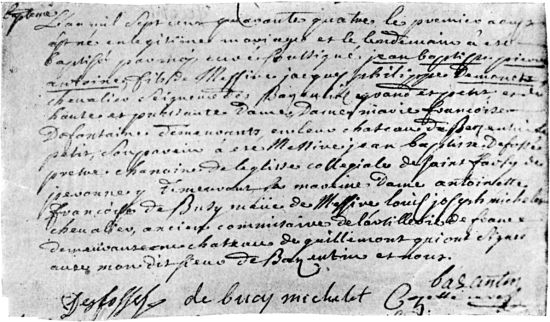 Bapteme
L'an mil sept cent quarante quatre le premier aoust
est né en legitime mariage et le lendemain a esté
baptisé par moy curé soussigné jean baptiste pierre
antoine, fils de Messire jacques philippe de monet
chevalier seigneur des Bazentin grand et petit et de
haute et puissante Dame, Dame marie françoise
De fontaine demeurants en leur chateau de Bazentin le
petit, son parein a esté Messire jean baptiste De fossé
pretre chanoine de l'eglise collegiale de Saint farcy de
peronne, y demeurant sa mareine Dame antoinette
françoise de Bucy niece de Messire louis joseph michelet
chevalier, ancien commissaire de l'artillerie de france
demeurante au chateau de guillemont qui ont signé
avec mon dit sieur de Bazentin et nous.
Desfossés de bucy michelet bazentin